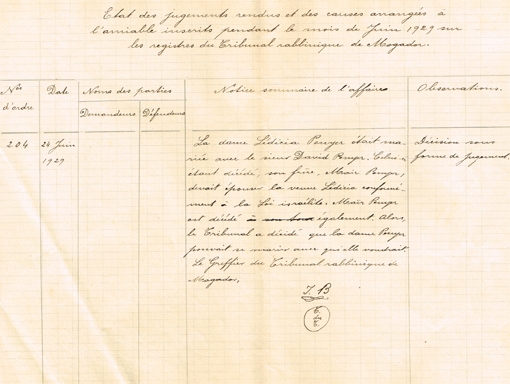 Etat des jugements rendus et des causes arrangées à
l'amiable inscrits pendant le mois de Juin 1929 sur
les registres du Tribunal rabbinique de Mogador.
Nos d'ordre
Date
Noms des parties
Demandeurs
Défendeurs
Notice sommaire de l'affaire
Observations.
204
24 Juin
1929
La dame Lédicia Penyer était ma-
riée avec le sieur David Penyer. Celui-ci
étant décédé, son frère, Meair Penyer,
devait épouser la veuve Lédicia conformé-
ment à la Loi israélite. Meair Penyer
est décédé à son tour également. Alors,
le Tribunal a décidé que la dame Penyer
pouvait se marier avec qui elle voudrait
Le Greffier du Tribunal rabbinique de
Mogador,
J. B
Décision sous
forme de Jugement.